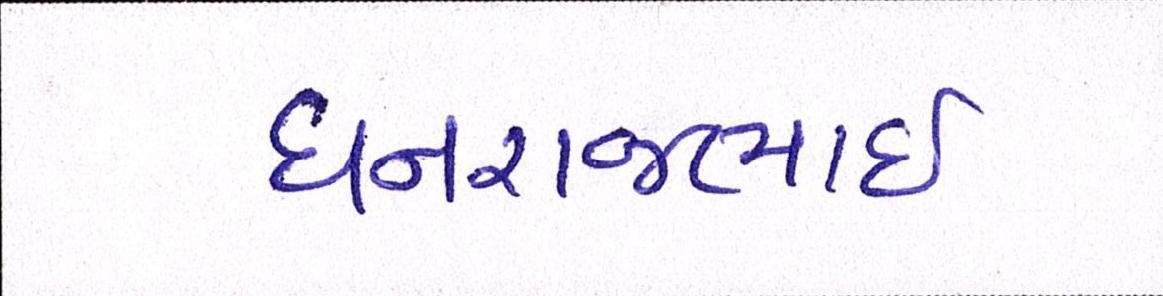 ધનરાજભાઈ